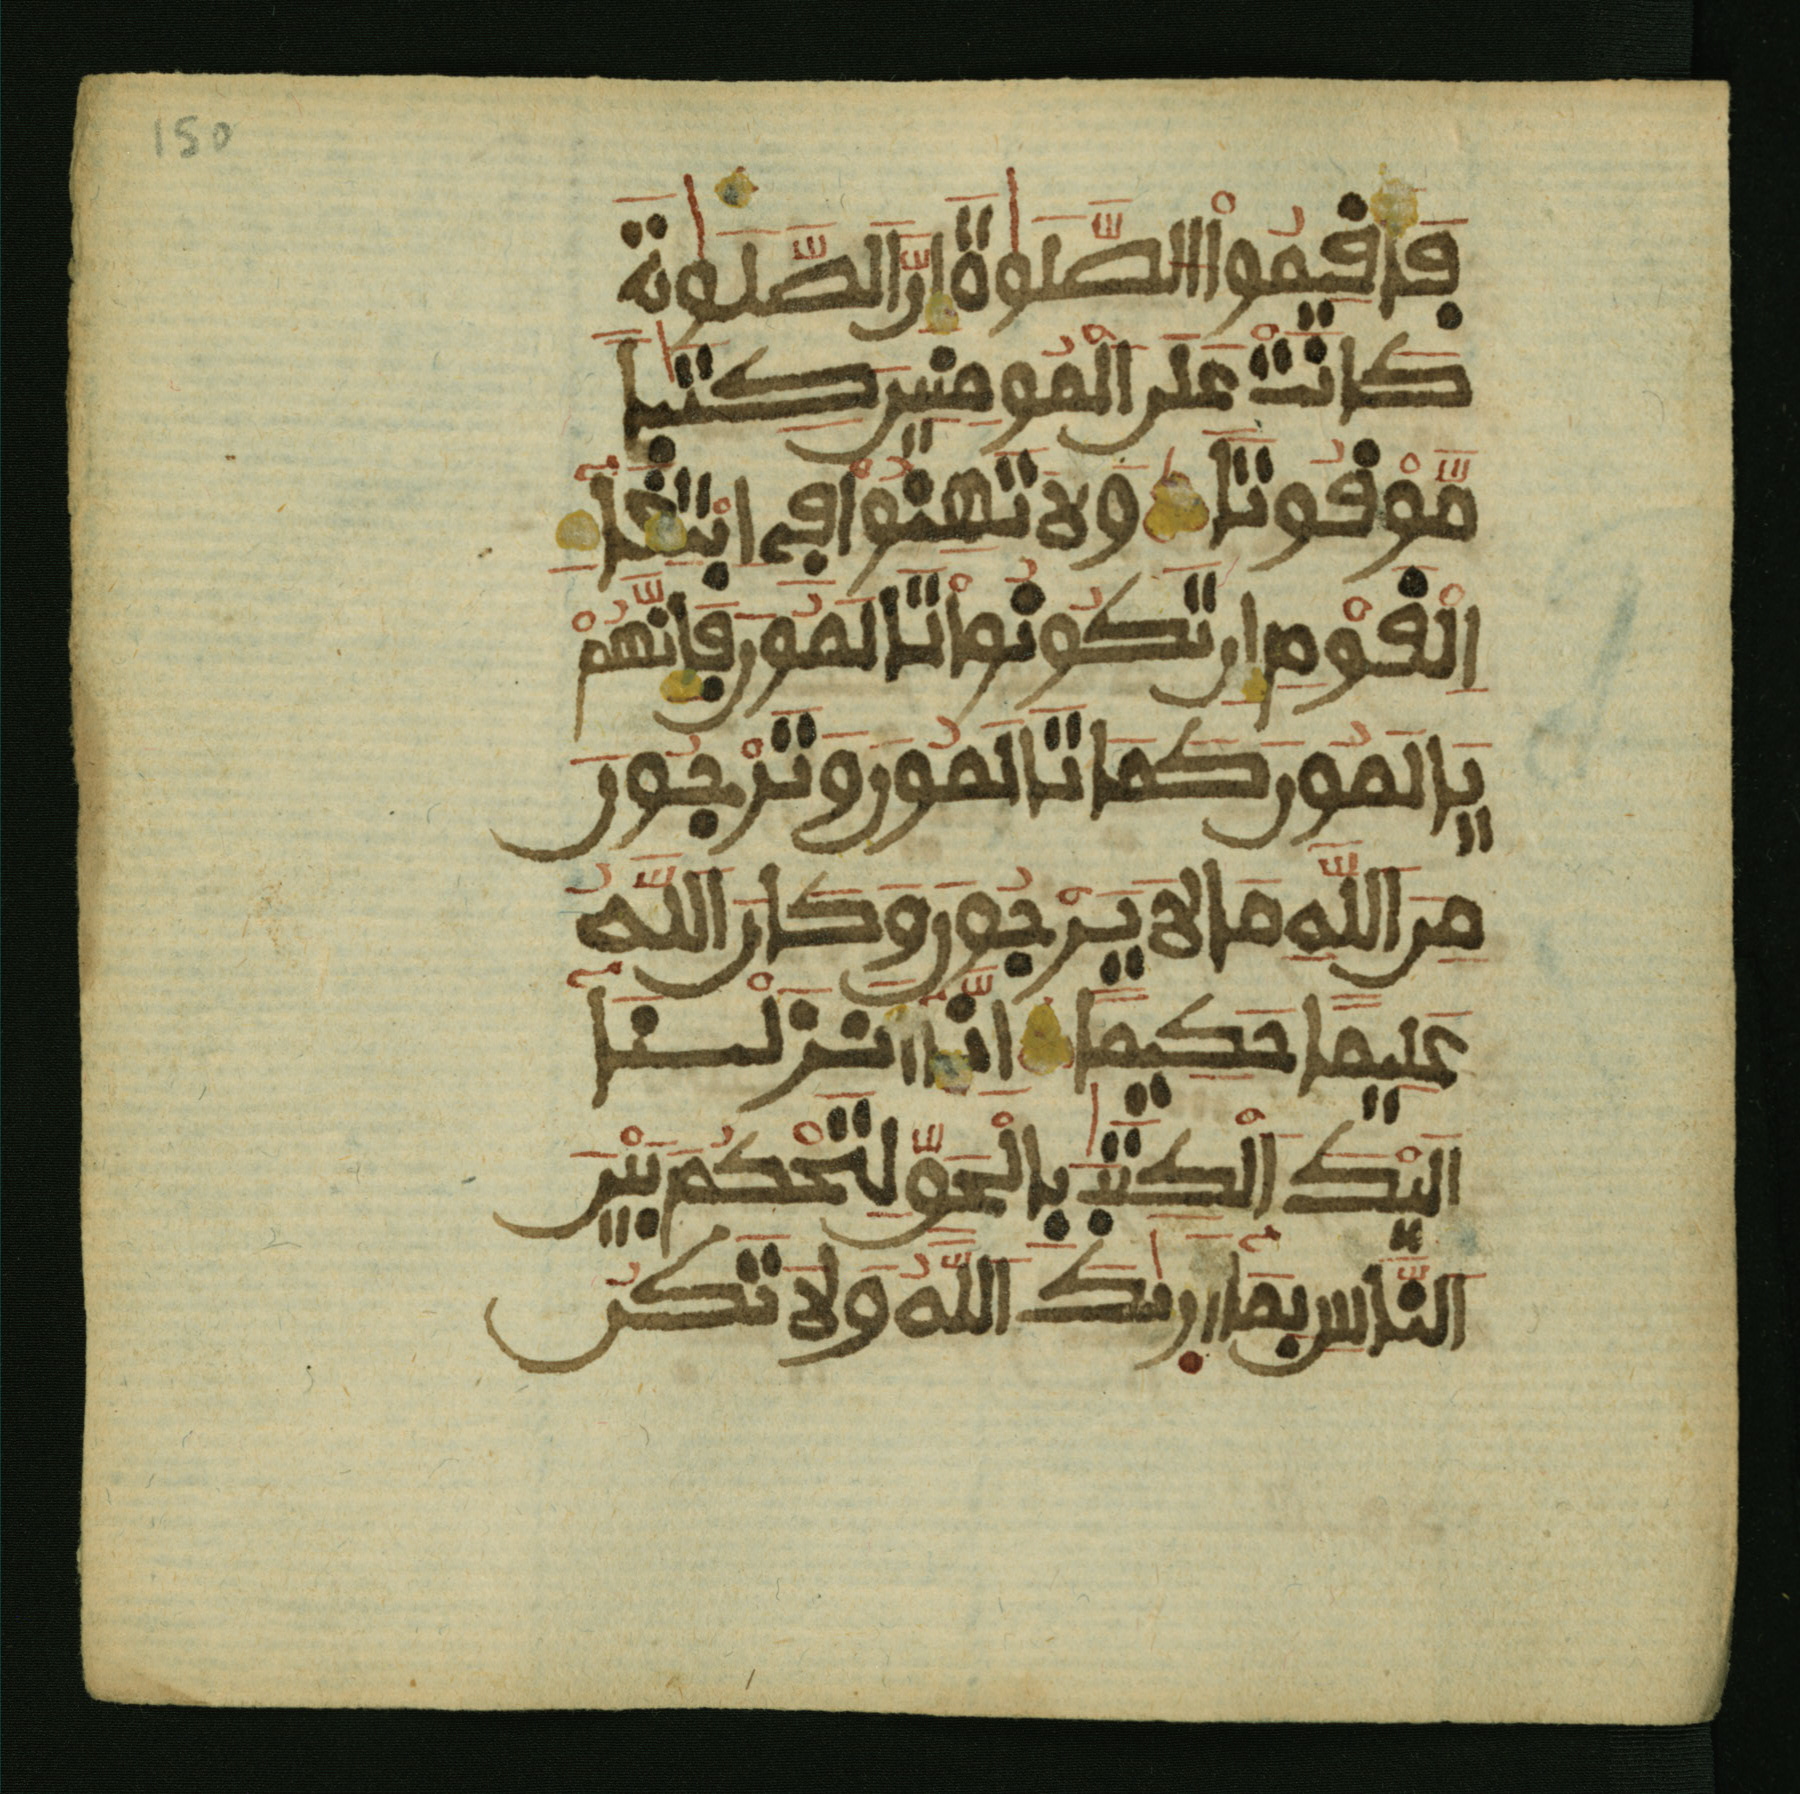 150
فَأَقِيمُوا۟ الصَّلَوٰةَ إِنَّ الصَّلَوٰةَ
كَانَتْ عَلَى الْمُومِنِينَ كِتَٰبًا
مَّوْقُوتًا وَلَا تَهِنُوا۟ فِي ابْتِغَآءِ
الْقَوْمِ إِن تَكُونُوا۟ تَالَمُونَ فَإِنَّهُمْ
يَالَمُونَ كَمَا تَالَمُونَ وَتَرْجُونَ
مِنَ اللَّهِ مَا لَا يَرْجُونَ وَكَانَ اللَّهُ
عَلِيمًا حَكِيمًا إِنَّآ أَنزَلْنَآ
إِلَيْكَ الْكِتَٰبَ بِالْحَقِّ لِتَحْكُمَ بَيْنَ
النَّاسِ بِمَآ أَرَىٰكَ اللَّهُ وَلَا تَكُن